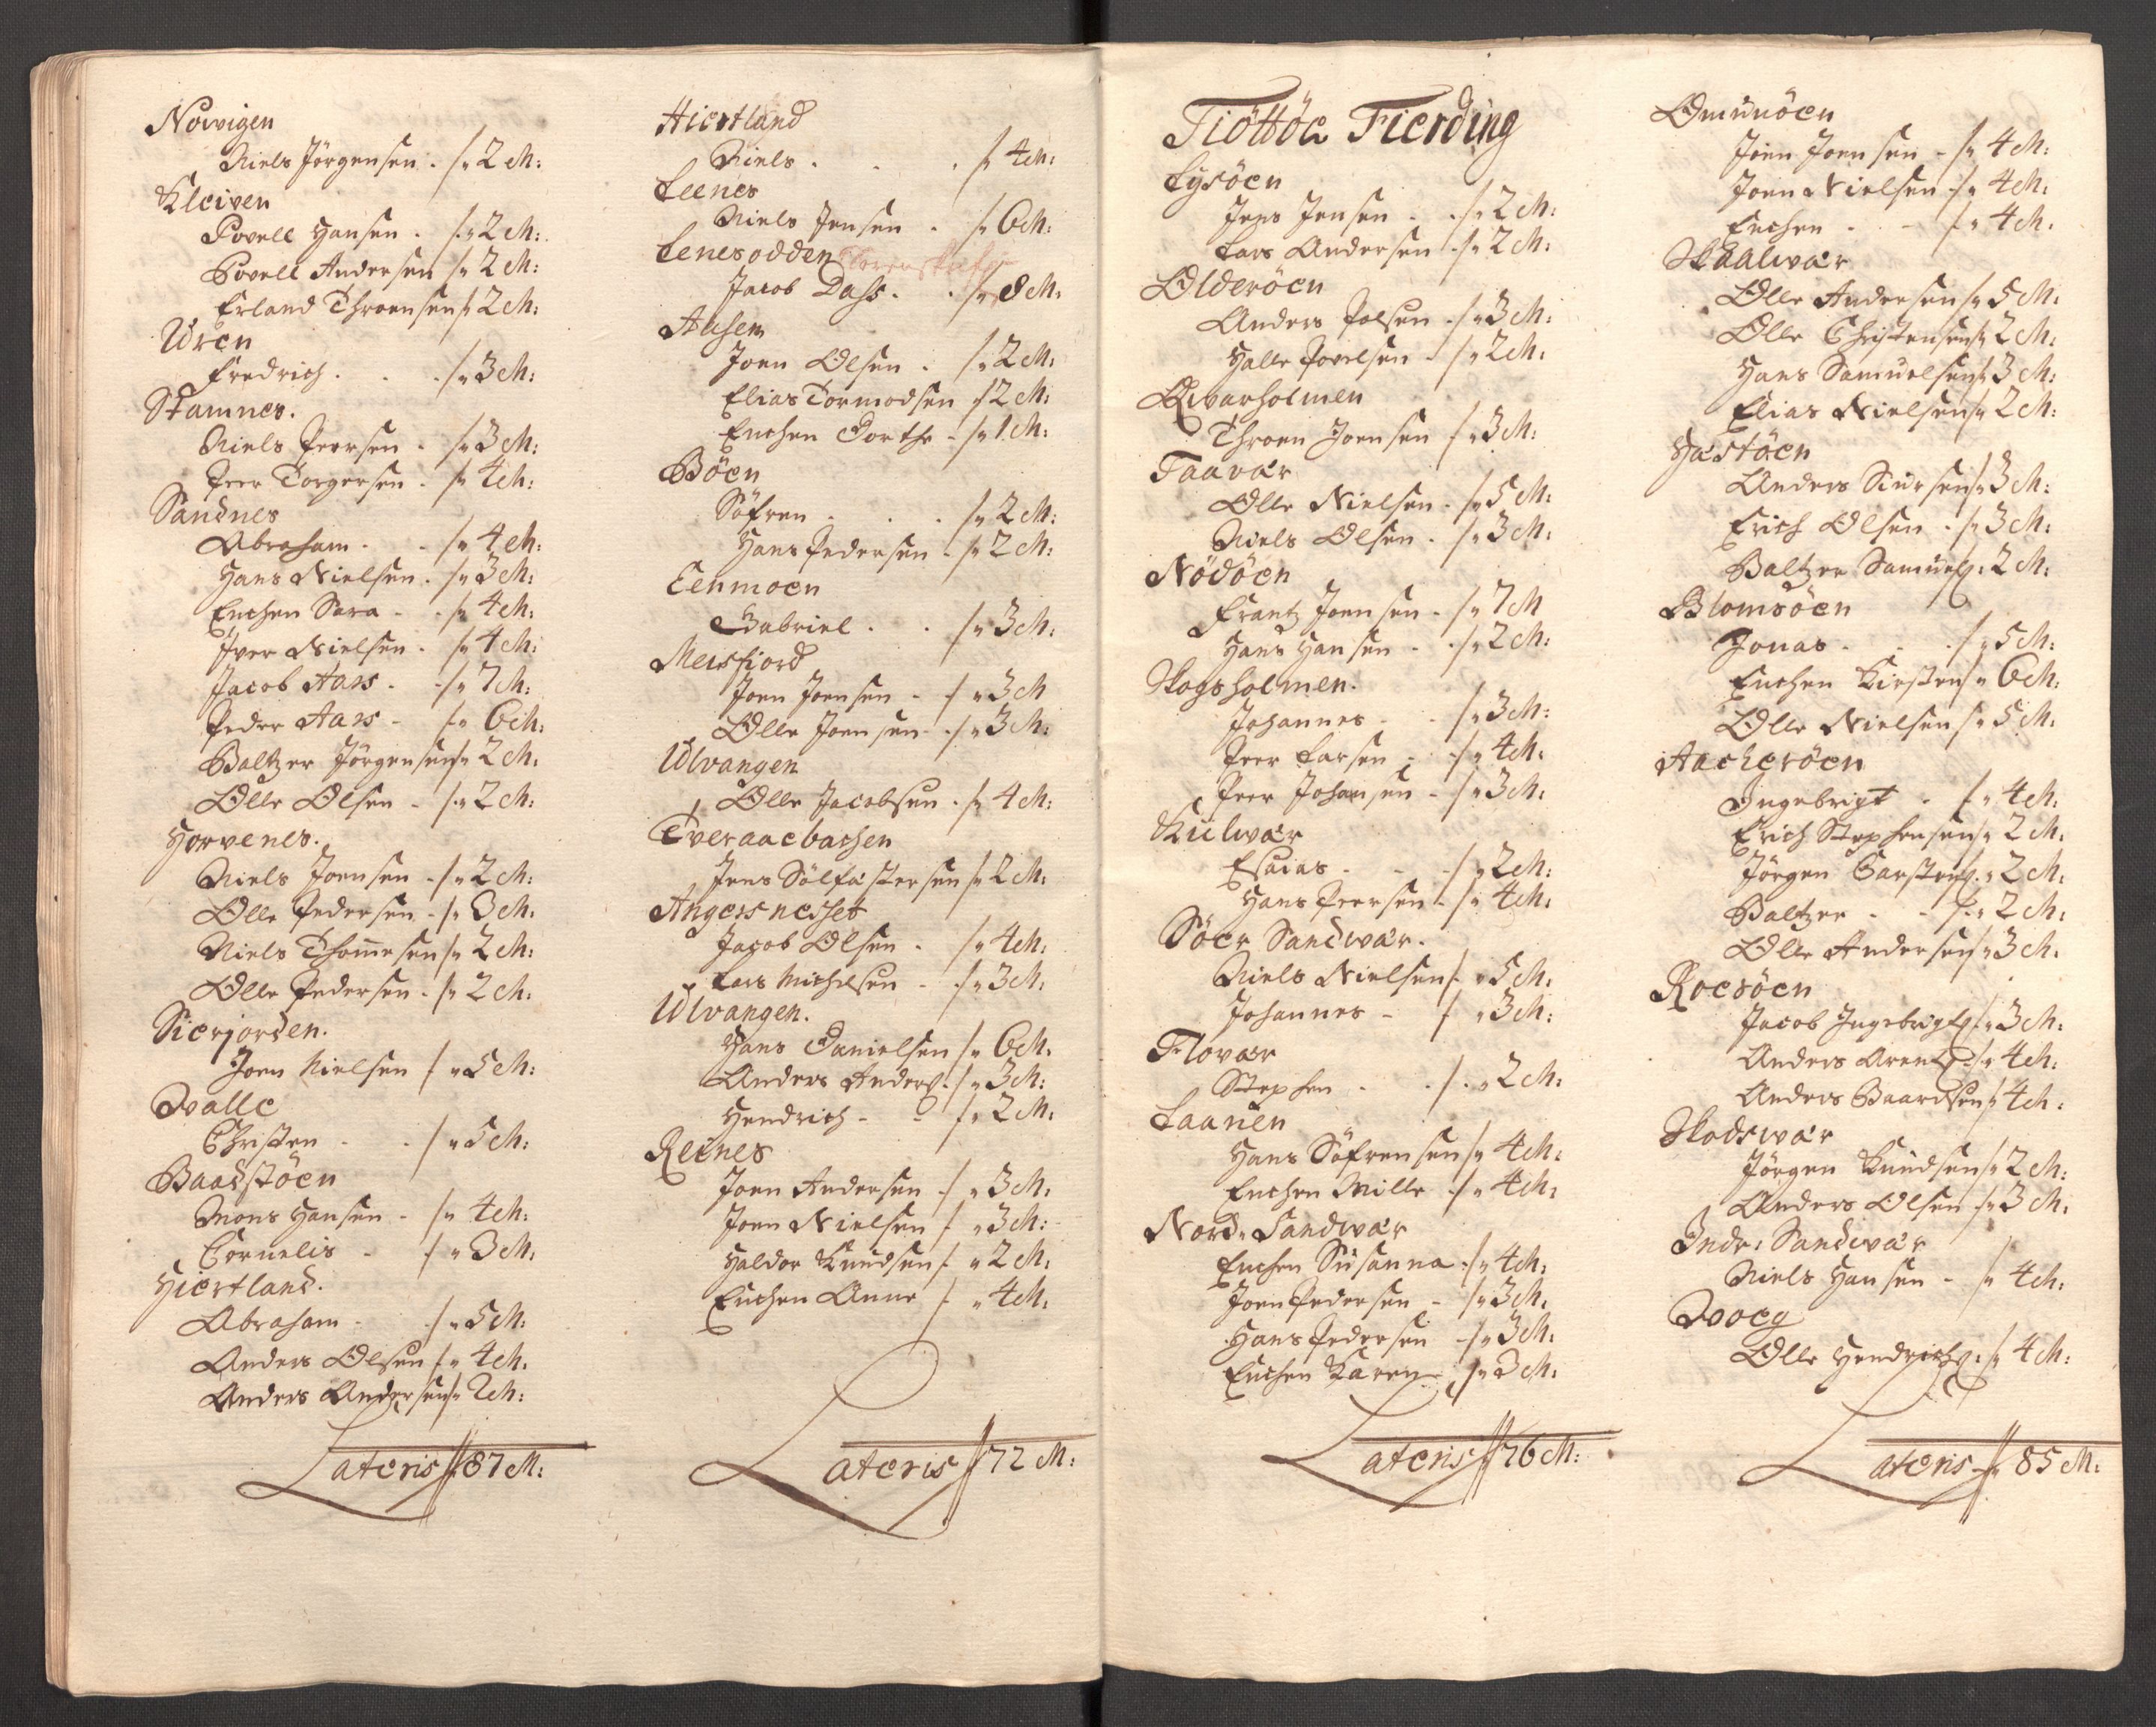 Norvigen
Niels Jörgensen . /" 2 M:
Kleiven
Povell Hansen . /" 2 M:
Povell Andersen /" 2 M:
Erland Throensen /" 2 M:
Uren
Fredrich . . . /" 3 M:
Stamnes.
Niels Peersen . /" 3 M:
Peer Torgersen . /" 4 M:
Sandnes
Abraham . . /" 4 M:
Hans Nielsen . /" 3 M:
Enchen Sara . . /" 4 M:
Iver Nielsen . /" 4 M:
Jacob Aars . . /" 7 M:
Peder Aars - /" 6 M:
Baltzer Jörgensen /" 2 M:
Olle Olsen - /" 2 M:
Horvenes.
Niels Joensen - /" 2 M:
Olle Pedersen - /" 3 M:
Niels Thommesen /" 2 M:
Olle Pedersen - /" 2 M:
Sierjorden.
Joen Nielsen / " 5 M:
Walle
Christen - . / " 5 M:
Baadstöen
Mons Hansen - /" 4 M:
Cornelis - / " 3 M:
Hiertland.
Abraham - ./ " 5 M:
Anders Olsen /" 4 M:
Anders Andersen /" 2 M:
Lateris /" 87 M:
Hiertland
Niels . . . /" 4 M:
Leenes
Niels Jensen . /" 6 M:
Lenesodden
Jacob Dass . . /" 8 M:
Ausen
Joen Olsen . /" 2 M:
Elias Tormodsen /" 2 M:
Enchen Dorthe - /" 1 M:
Böen
Söfren . . . /" 2 M:
Hans Pedersen - /" 2 M:
Lenmoen
Gabriel . . /" 3 M:
Meisfiord
Joen Joensen - / " 3 M
Olle Joensen - /" 3 M:
Ulvangen
Olle Jacobsen . /" 4 M:
Tveraaebachen
Jens Sölfastersen /" 2 M:
Angersnesset
Jacob Olsen . /" 4 M:
Lars Michelsen - /" 3 M:
Ulvangen.
Hans Danielsen /" 6 M:
Anders Anders: /" 3 M:
Hendrich - - /" 2 M:
Reines
Joen Andersen / " 3 M:
Joen Nielsen / " 3 M:
Haldor Knudsen / " 2 M:
Enchen Anne / " 4 M:
Lateris /" 72 M:
Tiöttöe Fierding
Lysöen
Jens Jensen . ./" 2 M:
Lars Andersen ./" 2 M:
Olderöen
Anders Polsen ./" 3 M:
Halle Povelsen - /" 2 M:
Qvarholmen
Throen Joensen /" 3 M:
Taavær
Olle Nielsen . /" 5 M:
Niels Olsen . /" 3 M:
Nödöen
Frantz Joensen . /" 7 M
Hans Hansen . ./" 2 M:
Skogsholmen.
Johannes - - /" 3 M:
Peer Larsen - /" 4 M:
Peer Johansen - /" 3 M:
Kulwær
Esaias - - - /" 2 M:
Hans Peersen - /" 4 M:
Söer Sandwær.
Niels Nielsen / " 5 M:
Johannes - / " 3 M:
Flovær
Stephen . . / . " 2 M:
Laanen
Hans Söfrensen /" 4 M:
Enchen Mille ./" 4 M:
Nord: Sandwær
Enchen Susanna ./" 4 M:
Joen Pedersen - /" 3 M:
Hans Pedersen - /" 3 M:
Enchen Karen - /" 3 M:
Lateris /" 76 M:
Omunöen
Joen Joensen - /" 4 M:
Joen Nielsen - /" 4 M:
Enchen . - - /" 4 M.
Skaalwær
Olle Andersen /" 5 M:
Olle Christensen /" 2 M:
Hans Samuelsen /" 3 M:
Elias Nielsen /" 2 M:
Hæstöen
Anders Siursen /" 3 M:
Erich Olsen . /" 3 M:
Baltzer Samuels: 2 M:
Blomsöen
Jonas . . ./" 5 M:
Enchen Kirsten /" 6 M:
Olle Nielsen /" 5 M:
Aachesöen
Ingebrigt . /" 4 M:
Erich Stephensen /" 2 M:
Jörgen Carstens: " 2 M:
Baltzer - - /" 2 M:
Olle Andersen /" 3 M.
Roesöen
Jacob Ingebrigts: /" 3 M:
Anders Arents: /" 4 M:
Anders Baardsen /" 4 M:
Skodswær
Jörgen Knudsen /" 2 M:
Anders Olsen ./" 3 M:
Indr: Sandwær
Niels Hansen - /" 4 M:
Woeg
Olle Hendrichs: /" 4 M:
Lateris /" 85 M: